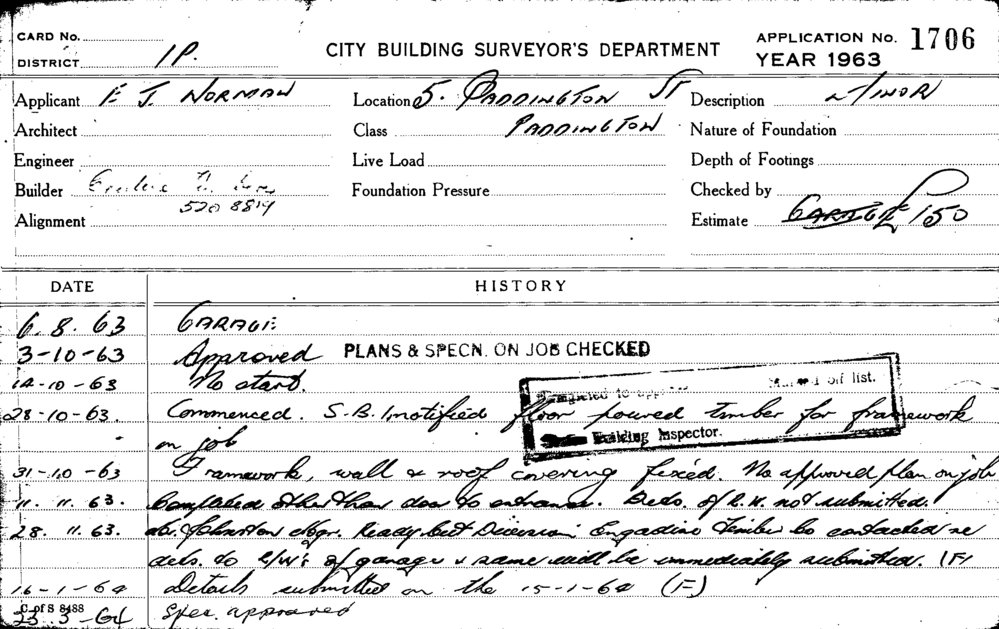 CARD No.
DISTRICT 1P.
CITY BUILDING SURVEYOR'S DEPARTMENT
APPLICATION No. 1706
YEAR 1963
Applicant E J. NORMAN
Location 5. PADDINGTON ST
Description MINOR
Architect
Class PADDINGTON
Nature of Foundation
Engineer
Live Load
Depth of Footings
Builder
Foundation Pressure
Checked by
520 8819
Alignment
Estimate GARAGE £150
DATE HISTORY
6. 8. 63 GARAGE
3-10-63 Approved PLANS & SPECN. ON JOB CHECKED
14-10-63 No start.
Completed to off list.
28-10-63. Commenced. S.B. notified floor poured timber for framework
on job
Building Inspector.
31-10-63 Framework, wall & roof covering fixed. No approved plan on job
11. 11. 63. Completed other than door to entrance. Deds. of R.W. not submitted.
28. 11. 63. Johnston Mgr. Ready Cut Division Engadine Timber Co contacted re
dets. to of garage & same will be immediately submitted. (F)
16-1-64 Details submitted on the 15-1-64 (F)
C. of S 8488
23. 3-64 Spec. approved